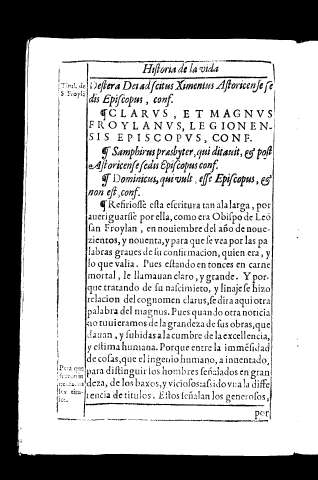 Historia de la vida
Titul. de
S. Froylã
Dextera Dei adscitus Ximenius Astoricense se
dis Episcopus, conf.
¶ CLARVS, ET MAGNVS
FROYLANVS, LEGIONEN-
SIS EPISCOPVS, CONF.
¶ Samphirus prasbyter, qui ditauit, & post
Astoricense sedis Episcopus conf.
¶ Dominicus, qui vult, esse Episcopus, &
non est, conf.
¶ Refiriosse esta escritura tan ala larga, por
aueriguarse por ella, como era Obispo de Leõ
san Froylan, en nouiembre del año de noue-
zientos, y nouenta, y para que se vea por las pa
labras graues de su confirmacion, quien era, y
lo que valia. Pues estando en tonces en carne
mortal, le llamauan claro, y grande. Y por-
que tratando de su nascimieto, y linaje se hizo
relacion del cognomen clarus, se dira aqui otra
palabra del magnus. Pues quando otra noticia
no tuuieramos de la grandeza de sus obras, que
dauan, y subidas a la cumbre de la excellencia,
y estima humana. Porque entre la immẽsidad
de cosas, que el ingenio humano, a inuentado,
para distinguir los hombres señalados en gran
deza, de los baxos, y viciosos: a sido vna la diffe
rencia de titulos. Estos señalan los generosos,
Para que
por